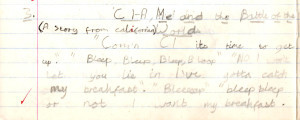 3. C.I.A, Me and the Battle of the
(A story from california) World
"Come C its time to get
up." "Bleep, Bleep, Bleep, Bleep" "No, I
let you lie in I've gotta catch
my breakfast." Bleeeep "bleep bleep
or not I want my breakfast.